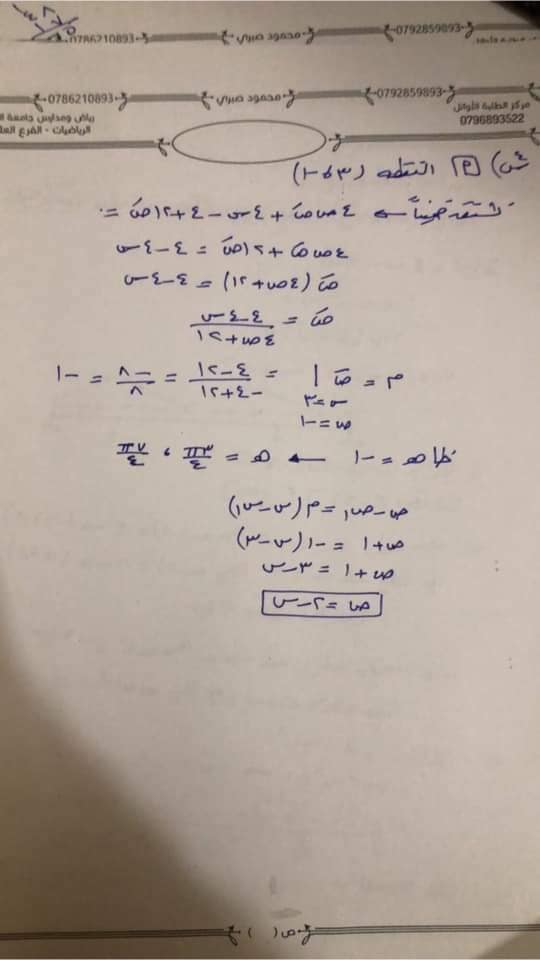 0786210893 محمود صبري 0792859893
0786210893 محمود صبري 0792859893
مركز الطلبة الأوائل
0796893522
رياض ومدارس جامعة ا
الرياضيات - الفرع العل
س٤) ٢ النقطة (٣، -١)
نشتق ضمنياً ← ٤ص صَ + ٤س - ٤ + ١٢صَ = ٠
٤ص صَ + ١٢صَ = ٤ - ٤س
صَ (٤ص + ١٢) = ٤ - ٤س
صَ = (٤ - ٤س) / (٤ص + ١٢)
م = صَ | س=٣ ص=-١ = (٤ - ١٢) / (-٤ + ١٢) = -٨/٨ = -١
ظاهـ = -١ ← هـ = ٣π/٤ ، ٧π/٤
ص - ص١ = م(س - س١)
ص + ١ = -١(س - ٣)
ص + ١ = ٣ - س
ص = ٢ - س
ص ( )